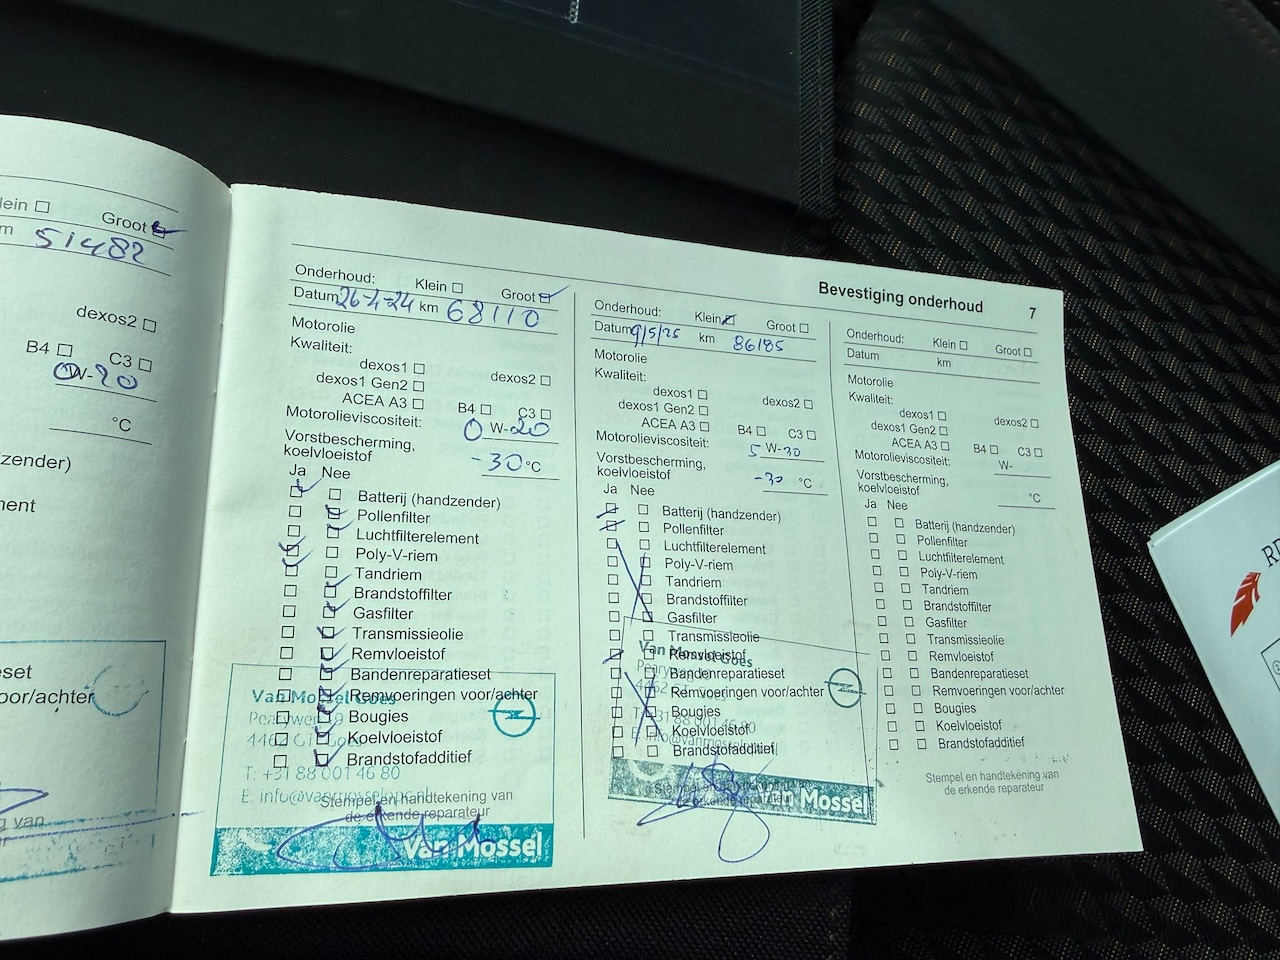 Klein Groot
51482
dexos2
B4 C3
0W-20
°C
Bevestiging onderhoud 7
Onderhoud: Klein Groot
Datum 26-4-24 km 68110
Motorolie
Kwaliteit:
dexos1 dexos2
dexos1 Gen2
ACEA A3 B4 C3
Motorolieviscositeit: 0 W-20
Vorstbescherming,
koelvloeistof -30 °C
Ja Nee
Batterij (handzender)
Pollenfilter
Luchtfilterelement
Poly-V-riem
Tandriem
Brandstoffilter
Gasfilter
Transmissieolie
Remvloeistof
Bandenreparatieset
Remvoeringen voor/achter
Bougies
Koelvloeistof
Brandstofadditief
Van Mossel Goes
T: +31 88 001 46 80
Stempel en handtekening van
de erkende reparateur
Van Mossel
Onderhoud: Klein Groot
Datum 9/5/25 km 86185
Motorolie
Kwaliteit:
dexos1 dexos2
dexos1 Gen2
ACEA A3 B4 C3
Motorolieviscositeit: 5 W-30
Vorstbescherming,
koelvloeistof -30 °C
Ja Nee
Batterij (handzender)
Pollenfilter
Luchtfilterelement
Poly-V-riem
Tandriem
Brandstoffilter
Gasfilter
Transmissieolie
Remvloeistof
Bandenreparatieset
Remvoeringen voor/achter
Bougies
Koelvloeistof
Brandstofadditief
Van Mossel Goes
Stempel en handtekening van
de erkende reparateur
Van Mossel
Onderhoud: Klein Groot
Datum km
Motorolie
Kwaliteit:
dexos1 dexos2
dexos1 Gen2
ACEA A3 B4 C3
Motorolieviscositeit: W-
Vorstbescherming,
koelvloeistof °C
Ja Nee
Batterij (handzender)
Pollenfilter
Luchtfilterelement
Poly-V-riem
Tandriem
Brandstoffilter
Gasfilter
Transmissieolie
Remvloeistof
Bandenreparatieset
Remvoeringen voor/achter
Bougies
Koelvloeistof
Brandstofadditief
Stempel en handtekening van
de erkende reparateur